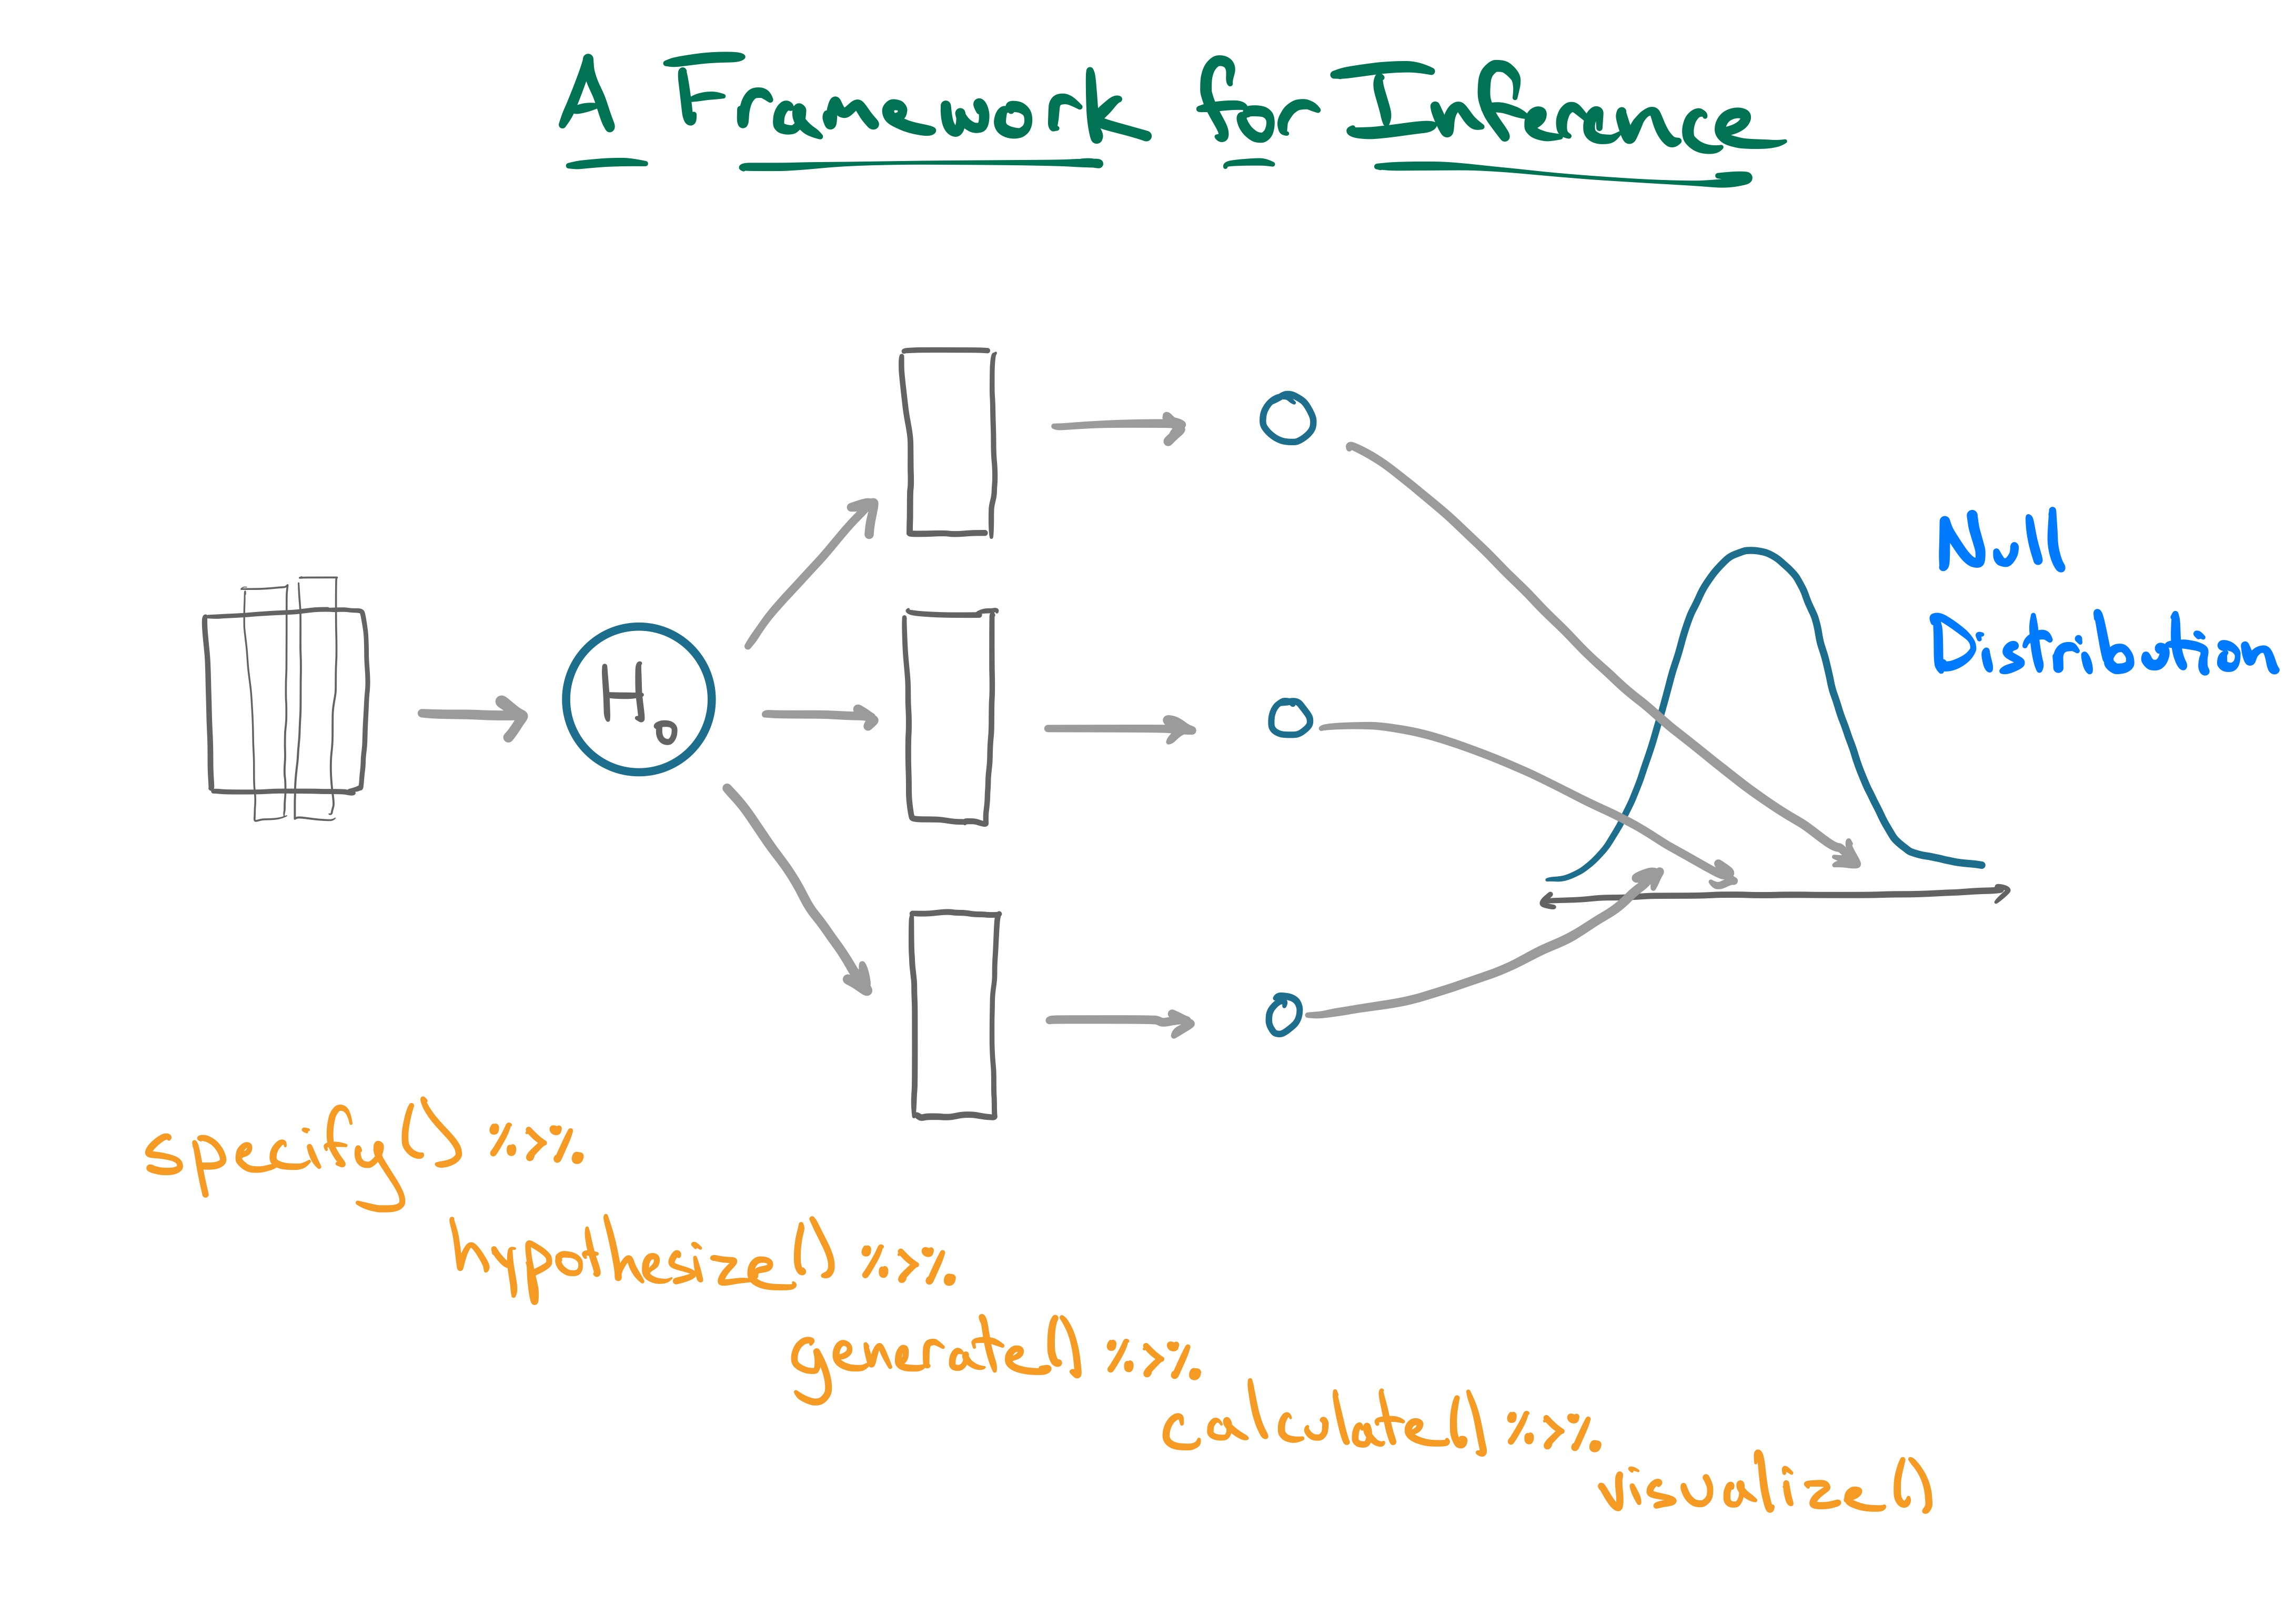 A Framework for Inference
H0
Null
Distribution
specify() %>%
hypothesize() %>%
generate() %>%
calculate() %>%
visualize()